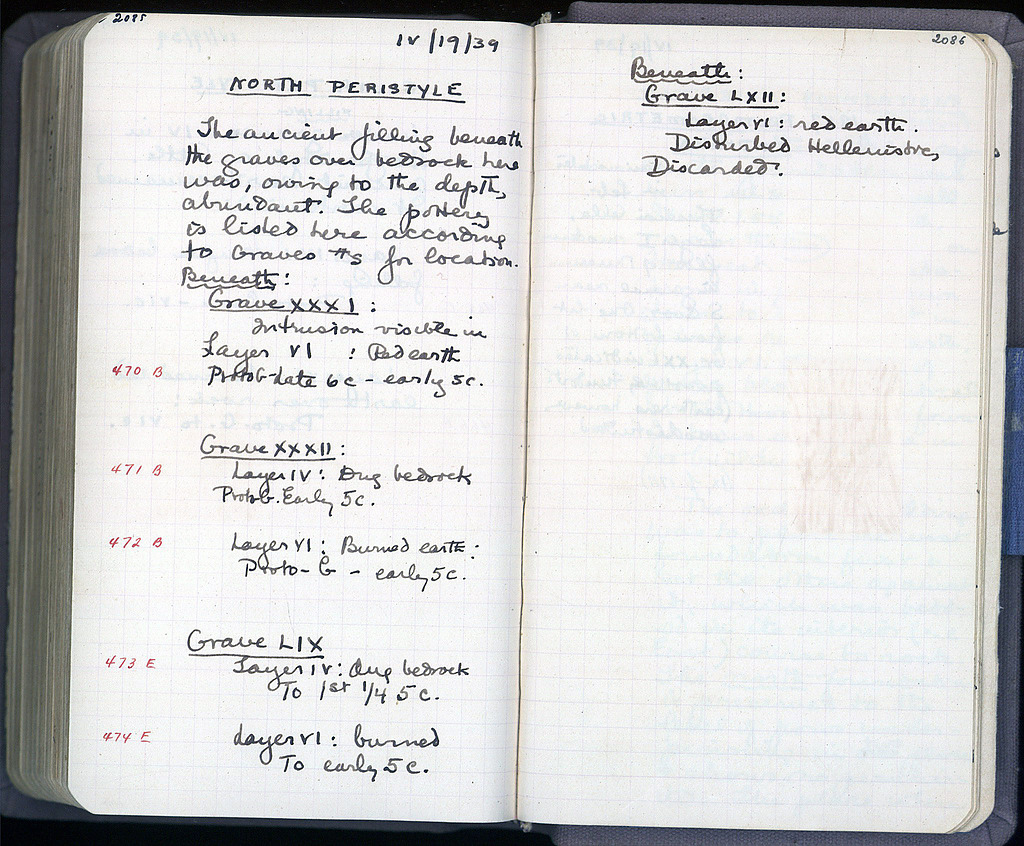 2085
IV/19/39
NORTH PERISTYLE
The ancient filling beneath
the graves over bedrock here
was, owing to the depth,
abundant. The pottery
is listed here according
to Graves #s for location.
Beneath:
Grave XXXI :
Intrusion visible in
Layer VI : Red earth
470 B Proto G-late 6c - early 5c.
Grave XXXII:
471 B Layer IV: Dug bedrock
Proto G. Early 5c.
472 B Layer VI: Burned earth:
Proto-G - early 5c.
Grave LIX
473 E Layer IV: Dug bedrock
To 1st 1/4 5c.
474 E Layer VI: burned
To early 5c.
2086
Beneath:
Grave LXII:
Layer VI: red earth.
Disturbed Hellenistic,
Discarded.